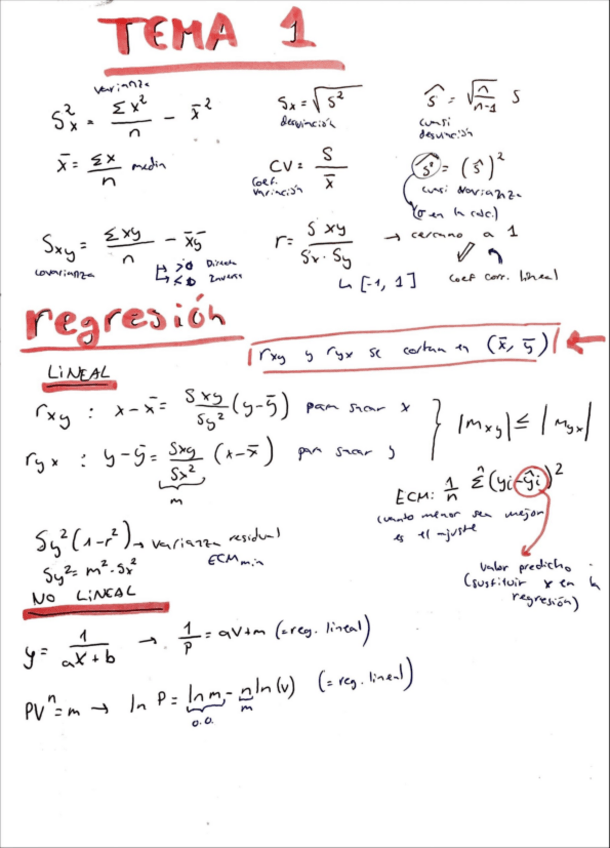 TEMA 1
varianza
S²x = Σx²/n − x̄²
Sx = √S²
desviación
ŝ = √(n/n-1) S
cuasi
desviación
x̄ = Σx/n media
CV = S/x̄
coef.
variación
ŝ² = (ŝ)²
cuasi varianza
(σ en la calc.)
Sxy = Σxy/n − x̄ȳ
covarianza
>0 Directa
<0 Inversa
r = Sxy/Sx·Sy → cercano a 1
↳ [-1, 1]
coef corr. lineal
regresión
rxy y ryx se cortan en (x̄, ȳ)
LINEAL
rxy : x-x̄ = Sxy/Sy² (y-ȳ) para sacar x
|mxy| ≤ |myx|
ryx : y-ȳ = Sxy/Sx² (x-x̄) para sacar y
m
ECM: 1/n Σ(yi-ŷi)²
cuanto menor sea mejor
es el ajuste
Sy²(1-r²) → varianza residual
ECM min
Sy² = m²·Sx²
valor predicho
(sustituir x en la
regresión)
NO LINEAL
y = 1/aX+b → 1/P = aV+m (=reg. lineal)
PVⁿ=m → ln P = ln m - n ln(v) (=reg. lineal)
o.o. m